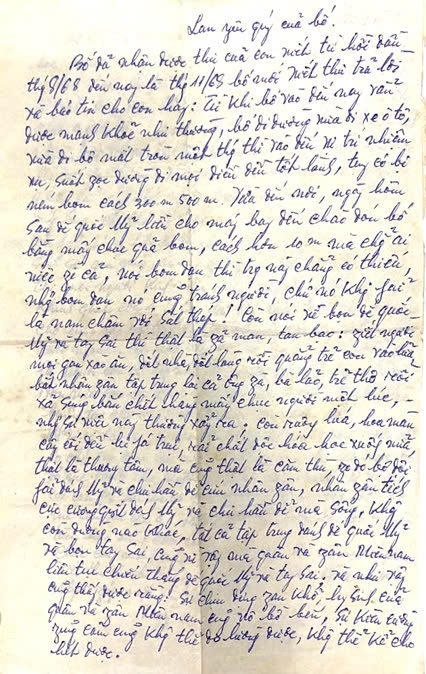 Lan yêu quý của bố!
Bố đã nhận được thư của con viết từ hồi đầu
thg 8/68 đến nay là thg 11/68 bố mới viết thư trả lời
và báo tin cho con hay: từ khi bố vào đến nay vẫn
được mạnh khoẻ như thường, bố đi đường vừa đi xe ô tô,
vừa đi bộ mất tròn một thg thì vào đến vị trí nhiên
xu, suốt zọc đường đi mọi điều đều tốt lành, tuy có bị
ném bom cách 300 m 500 m. Vừa đến nơi, ngày hôm
sau đế quốc Mỹ liền cho máy bay đến chào đón bố
bằng mấy chục quả bom, cách hơn 10 m mà chả ai
việc gì cả, nơi bom đạn thì trg này chẳng có thiếu,
nhg bom đạn nó cũng tránh người, chứ nó khg fải
là nam châm với sắt thép! Còn nói về bọn đế quốc
Mỹ và tay sai thì thật là zã man, tàn bạo: ziết người
mọi gan xảo ác, đốt nhà, đốt làng rồi quẳng trẻ con vào lửa
bắt nhân zân tập trung lại cả ông zà, bà lão, trẻ thơ rồi
xả súng bắn chết hàng mấy chục người một lúc,
nhg sự việc này thường xảy ra: còn ruộng lúa, hoa màu
cây cối đều bị fá trụi, rải chất độc hóa học xuống nữa,
thật là thương tâm, mà cũng thật là căm thù, zo đó bố đội
fải đánh Mỹ và chiến đấu để cứu nhân zân, nhân zân tích
cực cương quyết đánh Mỹ và chiến đấu để mà sống, khg
còn đường nào khác, tất cả tập trung đánh đế quốc Mỹ
và bọn tay sai, cũng vì vậy mà quân và zân Miền nam
liên tục chiến thắng đế quốc Mỹ và tay sai, và như vậy
cũng thấy được rằng: Sự chịu đựng zan khổ, hy sinh của
quân và zân Miền nam cũng vô bờ bến, sự kiên cường
zũng cảm cũng khg thể đo lường được, khg thể kể cho
hết được.